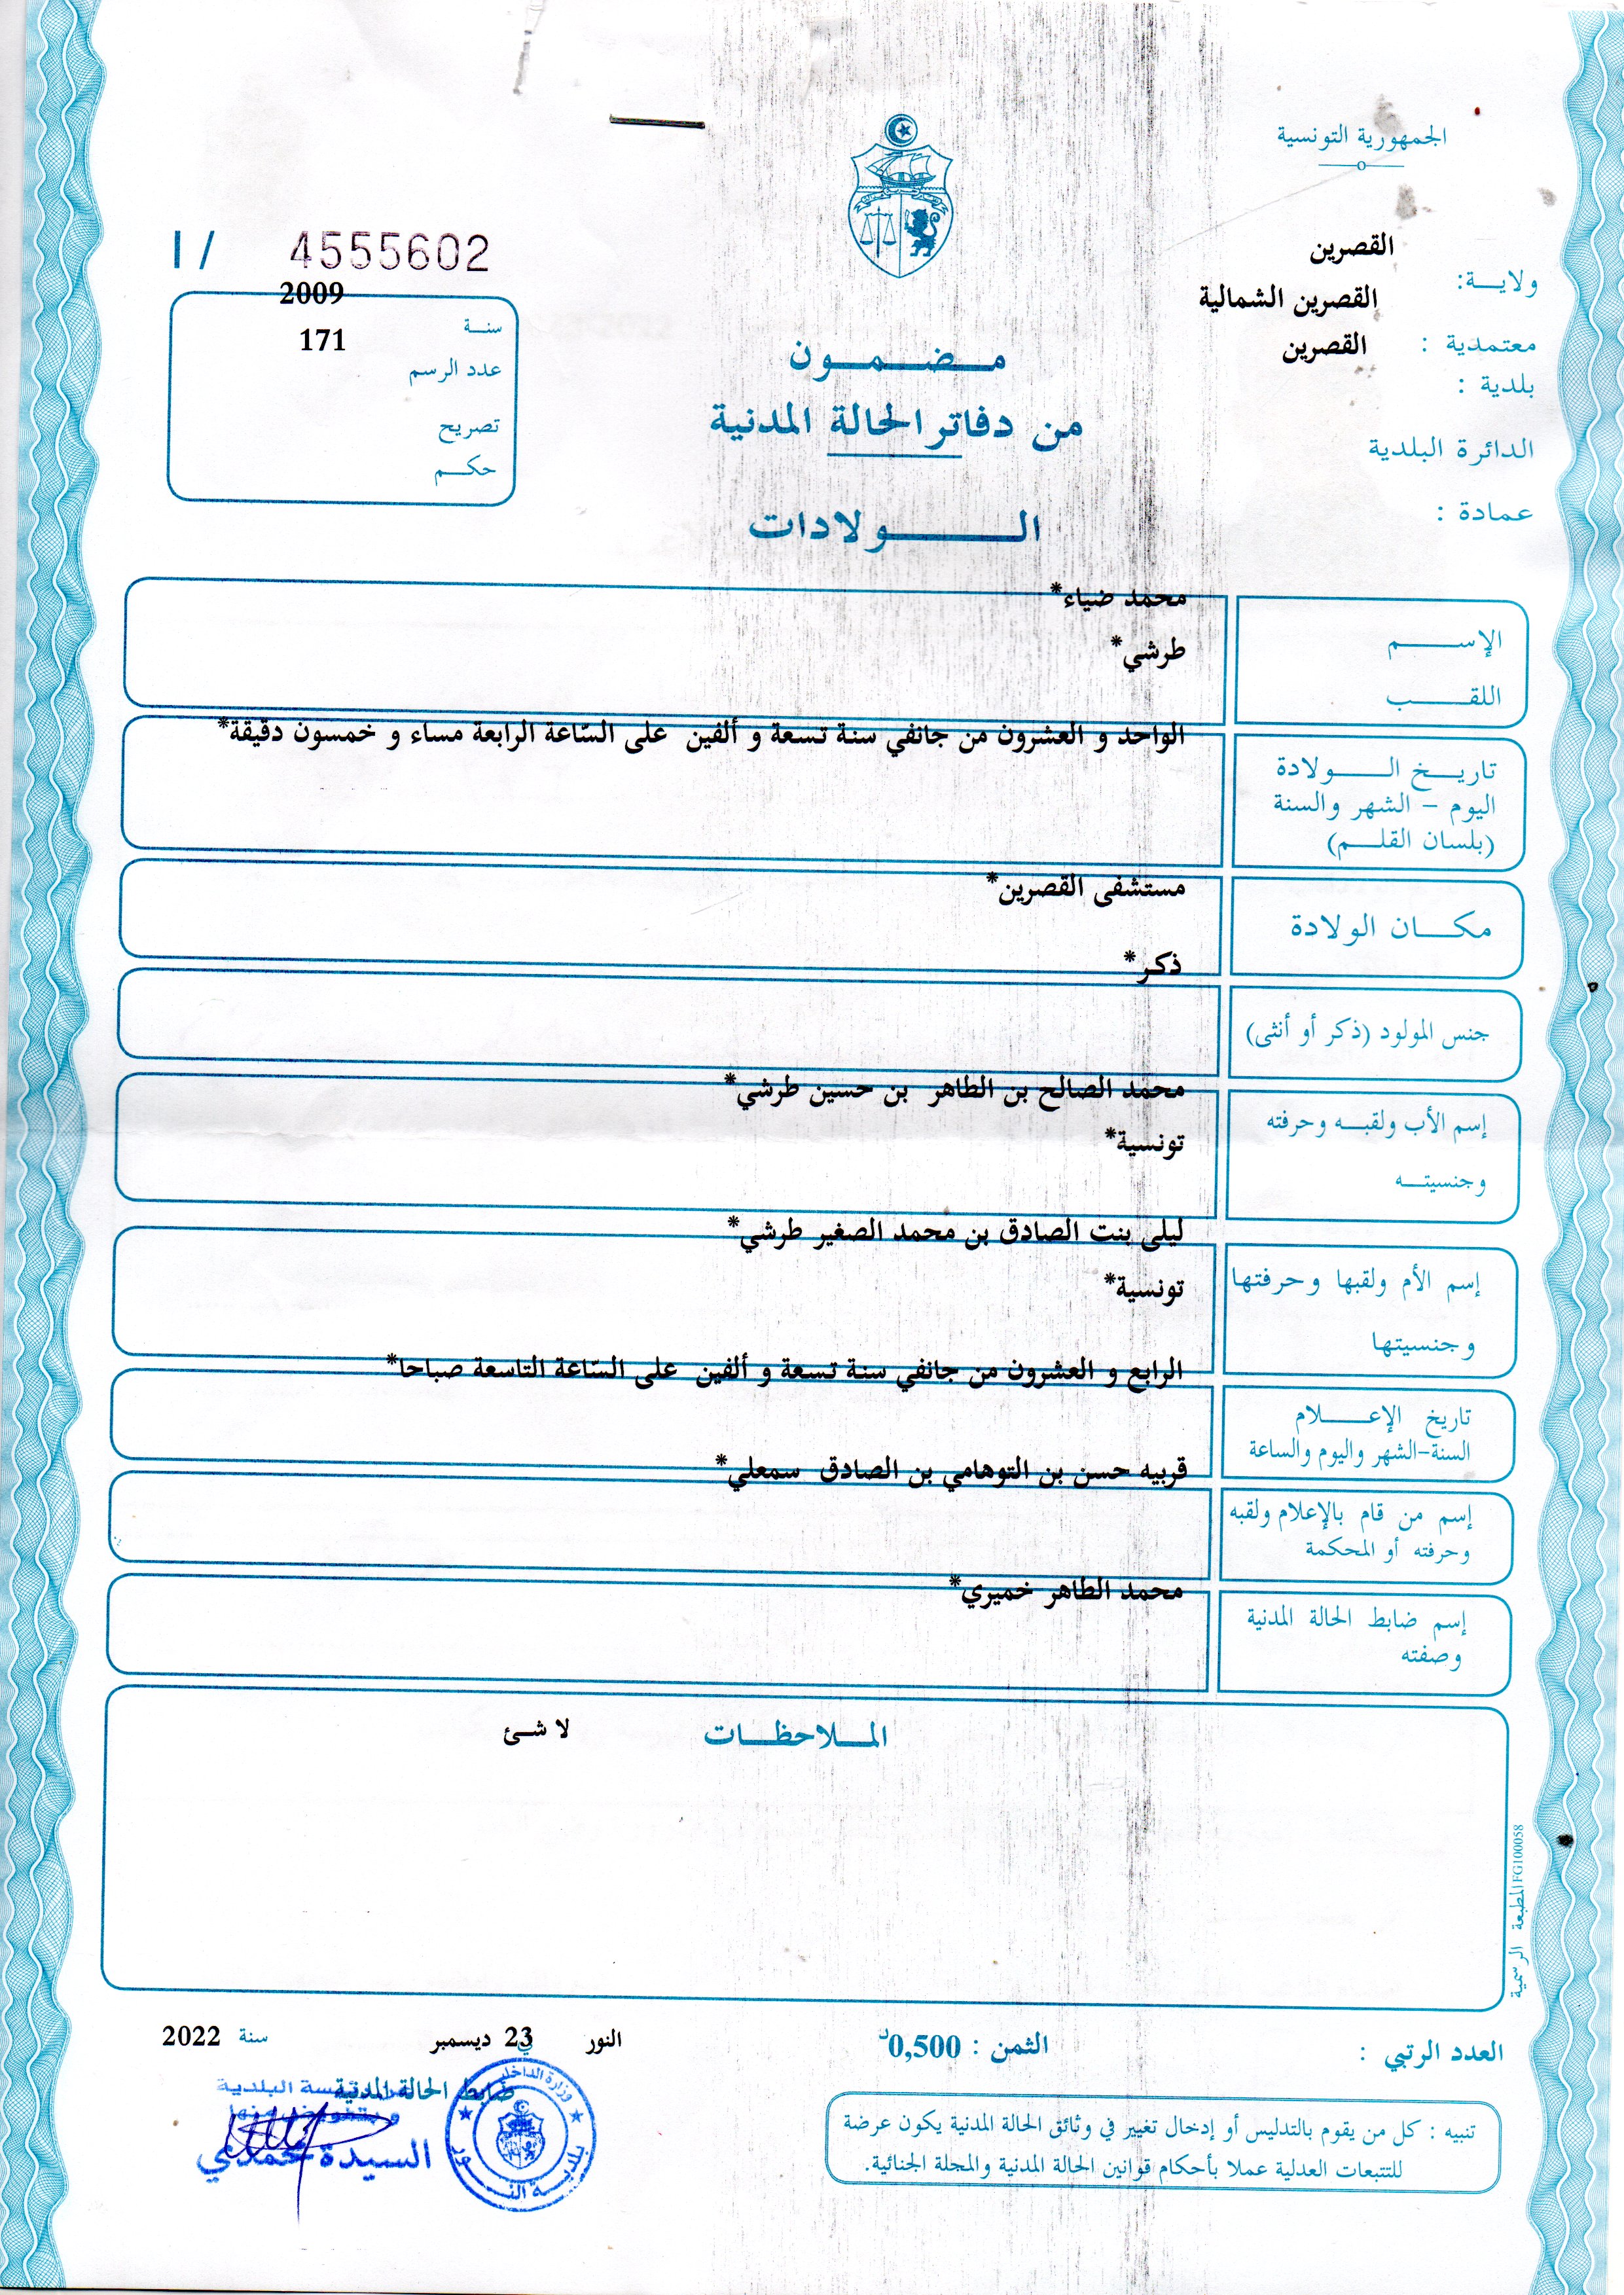 الجمهورية التونسية
I / 4555602
القصرين
ولايـــة:
القصرين الشمالية
معتمدية :
القصرين
بلدية :
الدائرة البلدية
عمادة :
2009
سنـــة
171
عدد الرسم
تصريح
حكـــم
مـــضـــمـــون
من دفاتر الحالة المدنية
الـــــولادات
محمد ضياء*
الإســـــم
طرشي*
اللقـــــب
الواحد و العشرون من جانفي سنة تسعة و ألفين على السّاعة الرابعة مساء و خمسون دقيقة*
تاريـــخ الـــــولادة
اليوم - الشهر والسنة
(بلسان القلـــم)
مستشفى القصرين*
مكـــان الولادة
ذكر*
جنس المولود (ذكر أو أنثى)
محمد الصالح بن الطاهر بن حسين طرشي*
إسم الأب ولقبـــه وحرفته
تونسية*
وجنسيتـــه
ليلى بنت الصادق بن محمد الصغير طرشي*
إسم الأم ولقبها وحرفتها
تونسية*
وجنسيتها
الرابع و العشرون من جانفي سنة تسعة و ألفين على السّاعة التاسعة صباحا*
تاريخ الإعـــــلام
السنة-الشهر واليوم والساعة
قريبه حسن بن التوهامي بن الصادق سمعلي*
إسم من قام بالإعلام ولقبه
وحرفته أو المحكمة
محمد الطاهر خميري*
إسم ضابط الحالة المدنية
وصفته
المـــلاحظـــات
لا شئ
المطبعة الرسمية FG100058
العدد الرتبي :
الثمن : 0,500د
النور في 23 ديسمبر سنة 2022
ضابط الحالة المدنية
وبتفويض منها
السيدة
وزارة الداخلية
تنبيه : كل من يقوم بالتدليس أو إدخال تغيير في وثائق الحالة المدنية يكون عرضة
للتتبعات العدلية عملا بأحكام قوانين الحالة المدنية والمجلة الجنائية.